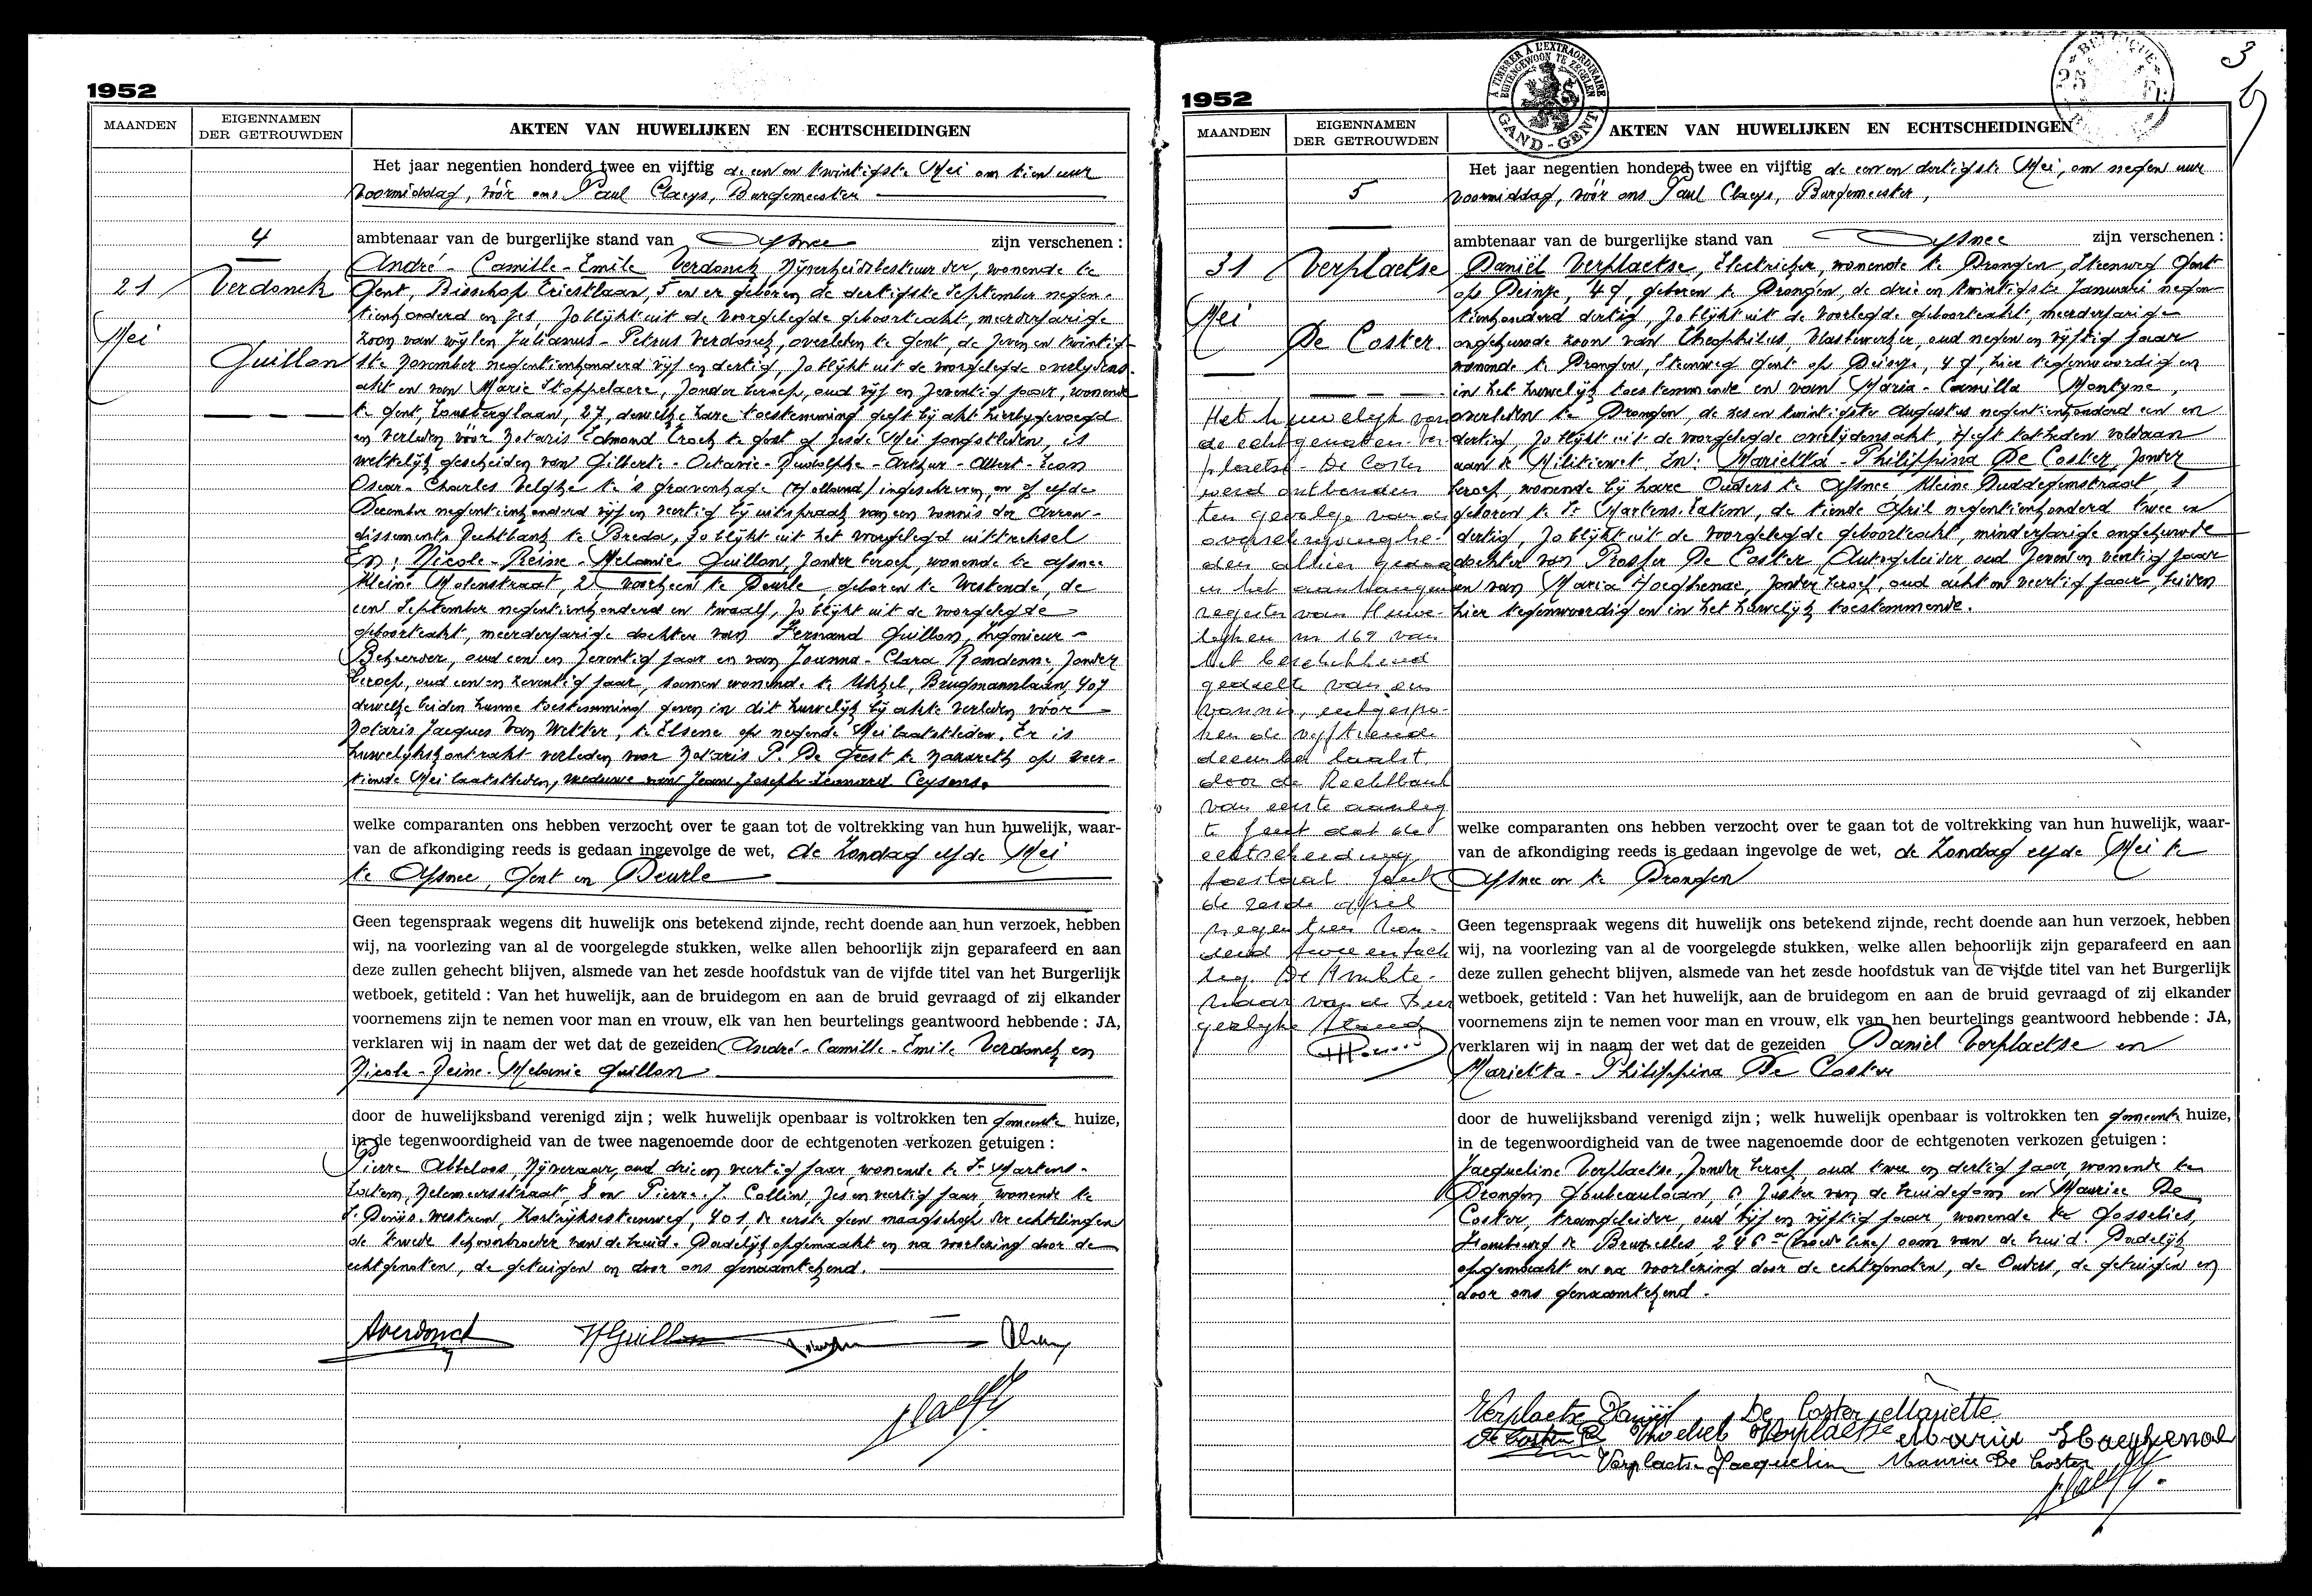 1952
MAANDEN
EIGENNAMEN
DER GETROUWDEN
AKTEN VAN HUWELIJKEN EN ECHTSCHEIDINGEN
4
21
Mei
Verdonck
Guillon
Het jaar negentien honderd twee en vijftig de een en twintigste Mei om tien uur
voormiddag, vóór ons Paul Claeys, Burgemeester
ambtenaar van de burgerlijke stand van Afsnee zijn verschenen :
André - Camille - Emile Verdonck Nijverheidsbestuurder, wonende te
Gent, Bisschop Triestlaan, 5 en er geboren de dertigste September negen-
tienhonderd en zes, zo blijkt uit de voorgelegde geboorteakt, meerderjarige
zoon van wijlen Julianus - Petrus Verdonck, overleden te Gent, de zeven en twintig-
ste November negentienhonderd vijf en dertig, zo blijkt uit de voorgelegde overlijdens-
akt en van Marie Stoppelaere, zonder beroep, oud vijf en zeventig jaar, wonende
te Gent, Lousbergslaan, 27, dewelke hare toestemming geeft bij akt hierbijgevoegd
en verleden vóór Notaris Edmond te Gent op zesde Mei jongstleden, is
wettelijk gescheiden van Gilberte - Octavie - Rudolphe - Arthur - Albert - Leon
Oscar - Charles Velghe te 's Gravenhage (Holland) ingeschreven, en op elfde
December negentienhonderd vijf en veertig bij uitspraak van een vonnis der Arron-
dissements Rechtbank te Breda, zo blijkt uit het voorgelegd uittreksel
En : Nicole - Reine - Melanie Guillon, zonder beroep, wonende te Afsnee
Kleine Molenstraat, 2 voorheen te Deurle, geboren te Westende, de
een September negentienhonderd en twaalf, zo blijkt uit de voorgelegde
geboorteakt, meerderjarige dochter van Fernand Guillon, Ingenieur -
Beheerder, oud een en zeventig jaar en van Joanna - Clara Ramdenne, zonder
beroep, oud een en zeventig jaar, samen wonende te Ukkel, Brugmannlaan, 407
dewelke beiden hunne toestemming geven in dit huwelijk bij akte verleden vóór
Notaris Jacques Van Wetter, te Elsene op negende Mei laatstleden. Er is
huwelijkskontrakt verleden voor Notaris P. De Geest te Nazareth op veer-
tiende Mei laatstleden, weduwe van Jean Joseph Leonard Ceysens.
welke comparanten ons hebben verzocht over te gaan tot de voltrekking van hun huwelijk, waar-
van de afkondiging reeds is gedaan ingevolge de wet, de Zondag elfde Mei
te Afsnee, Gent en Deurle
Geen tegenspraak wegens dit huwelijk ons betekend zijnde, recht doende aan hun verzoek, hebben
wij, na voorlezing van al de voorgelegde stukken, welke allen behoorlijk zijn geparafeerd en aan
deze zullen gehecht blijven, alsmede van het zesde hoofdstuk van de vijfde titel van het Burgerlijk
wetboek, getiteld : Van het huwelijk, aan de bruidegom en aan de bruid gevraagd of zij elkander
voornemens zijn te nemen voor man en vrouw, elk van hen beurtelings geantwoord hebbende : JA,
verklaren wij in naam der wet dat de gezeiden André - Camille - Emile Verdonck en
Nicole - Reine - Melanie Guillon
door de huwelijksband verenigd zijn ; welk huwelijk openbaar is voltrokken ten gemeente huize,
in de tegenwoordigheid van de twee nagenoemde door de echtgenoten verkozen getuigen :
Pierre Abbeloos, Nijveraar, oud drie en veertig jaar, wonende te St Martens-
Latem, Zelemeersstraat, 8 en Pierre. J. Collin, zes en veertig jaar, wonende te
St Denijs-Westrem, Kortrijksesteenweg, 401, de eerste geen maagschap der echtelingen
de tweede schoonbroeder van de bruid. Dadelijk opgemaakt en na voorlezing door de
echtgenoten, de getuigen en door ons genaamtekend.
AVerdonck
NGuillon
1952
MAANDEN
EIGENNAMEN
DER GETROUWDEN
AKTEN VAN HUWELIJKEN EN ECHTSCHEIDINGEN
A TIMBRER A L'EXTRAORDINAIRE
BUITENGEWOON TE ZEGELEN
GAND - GENT
3
5
31
Mei
Verplaetse
De Coster
Het huwelijk van
de echtgenoten Ver-
plaetse - De Coster
werd ontbonden
ten gevolge van de
overschrijving he-
den alhier gedaan
in het aanhangend
register van Huwe-
lijken nr 169 van
het beschikkend
gedeelte van een
vonnis, uitgespro-
ken de vijftiende
december laatst
door de Rechtbank
van eerste aanleg
te Gent dat de
echtscheiding
toestaat Gent
de zesde april
negentien hon-
derd twee en tach
tig. De Ambte-
naar van de bur
gerlijke stand
Het jaar negentien honderd twee en vijftig de een en dertigste Mei, om negen uur
voormiddag, vóór ons Paul Claeys, Burgemeester,
ambtenaar van de burgerlijke stand van Afsnee zijn verschenen :
Daniël Verplaetse, Electrieker, wonende te Drongen, Steenweg Gent
op Deinze, 49, geboren te Drongen, de drie en twintigste Januari negen
tienhonderd dertig, zo blijkt uit de voorlegde geboorteakte, meerderjarige
ongehuwde zoon van Theophilus, Vlasbewerker, oud negen en vijftig jaar
wonende te Drongen, Steenweg Gent op Deinze, 49, hier tegenwoordig en
in het huwelijk toestemmende en van Maria - Camilla Montyne,
overleden te Drongen, de zes en twintigste Augustus negentienhonderd een en
dertig, zo blijkt uit de voorgelegde overlijdensakt, Heeft tot heden voldaan
aan de Militiewet. En : Marietta - Philippina De Coster, zonder
beroep, wonende bij hare Ouders te Afsnee, Kleine Duddegemstraat, 1
geboren te St Martens-Latem, de tiende April negentienhonderd twee en
dertig, zo blijkt uit de voorgelegde geboorteakt, minderjarige ongehuwde
dochter van Prosper De Coster, Autogeleider, oud zeven en veertig jaar
en van Maria Haeghenae, zonder beroep, oud acht en veertig jaar, beiden
hier tegenwoordig en in het huwelijk toestemmende.
welke comparanten ons hebben verzocht over te gaan tot de voltrekking van hun huwelijk, waar-
van de afkondiging reeds is gedaan ingevolge de wet, de Zondag elfde Mei te
Afsnee en te Drongen
Geen tegenspraak wegens dit huwelijk ons betekend zijnde, recht doende aan hun verzoek, hebben
wij, na voorlezing van al de voorgelegde stukken, welke allen behoorlijk zijn geparafeerd en aan
deze zullen gehecht blijven, alsmede van het zesde hoofdstuk van de vijfde titel van het Burgerlijk
wetboek, getiteld : Van het huwelijk, aan de bruidegom en aan de bruid gevraagd of zij elkander
voornemens zijn te nemen voor man en vrouw, elk van hen beurtelings geantwoord hebbende : JA,
verklaren wij in naam der wet dat de gezeiden Daniel Verplaetse en
Marietta - Philippina De Coster
door de huwelijksband verenigd zijn ; welk huwelijk openbaar is voltrokken ten gemeente huize,
in de tegenwoordigheid van de twee nagenoemde door de echtgenoten verkozen getuigen :
Jacqueline Verplaetse, zonder beroep, oud twee en dertig jaar, wonende te
Drongen, 6 zuster van de bruidegom en Maurice De
Coster, tramgeleider, oud vijf en vijftig jaar, wonende te Gosselies,
Faubourg de Bruxelles, 246 oom van de bruid. Dadelijk
opgemaakt en na voorlezing door de echtgenoten, de Ouders, de getuigen en
door ons genaamtekend.
Verplaetse Daniël De Coster Mariette
De Coster P Verplaetse Maria Haeghenae
Verplaetse Jacqueline Maurice De Coster